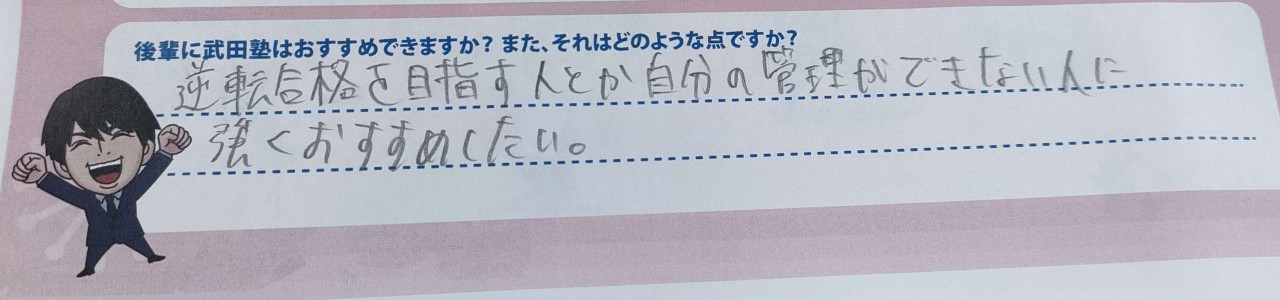 後輩に武田塾はおすすめできますか？また、それはどのような点ですか？
逆転合格を目指す人とか自分の管理ができない人に
強くおすすめしたい。